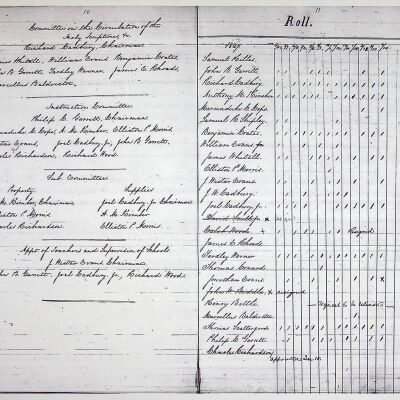 10
Committee on the Circulation of the
Holy Scriptures &c
Richard Cadbury, Chairman
James Whitall, William Evans Benjamin Coates,
John B Garrett, Yardley Warner, James E. Rhoads,
Marcellus Balderston
Instruction Committee
Philip C. Garrett, Chairman
Marmaduke C. Cope, A. M. Kimber, Elliston P. Morris
Evans, Joel Cadbury, Jr, John B Garrett,
Charles Richardson, Richard Wood.
Sub Committee
Property. Supplies
M. Kimber, Chairman Joel Cadbury, Jr Chairman
Elliston P Morris A M Kimber
Charles Richardson Elliston P. Morris
Appt. of Teachers and Supervision of Schools
J Wistar Evans Chairman
John B Garrett, Joel Cadbury, Jr, Richard Wood.
11
Roll.
1867.
Samuel Hilles
John B. Garrett
Richard Cadbury
Anthony M Kimber
Marmaduke C Cope
Samuel R Shipley
Benjamin Coates
William Evans Jr
James Whitall
Elliston P. Morris
J Wistar Evans
J W Cadbury
Joel Cadbury, Jr
David Scull Jr
Caleb Wood Resigned
James E Rhoads
Yardley Warner
Thomas Conard
Jonathan Evans
John W Biddle resigned
Henry Bettle request to be released
Marcellus Balderston
Thomas Scattergood
Philip C Garrett
Charles Richardson appointed